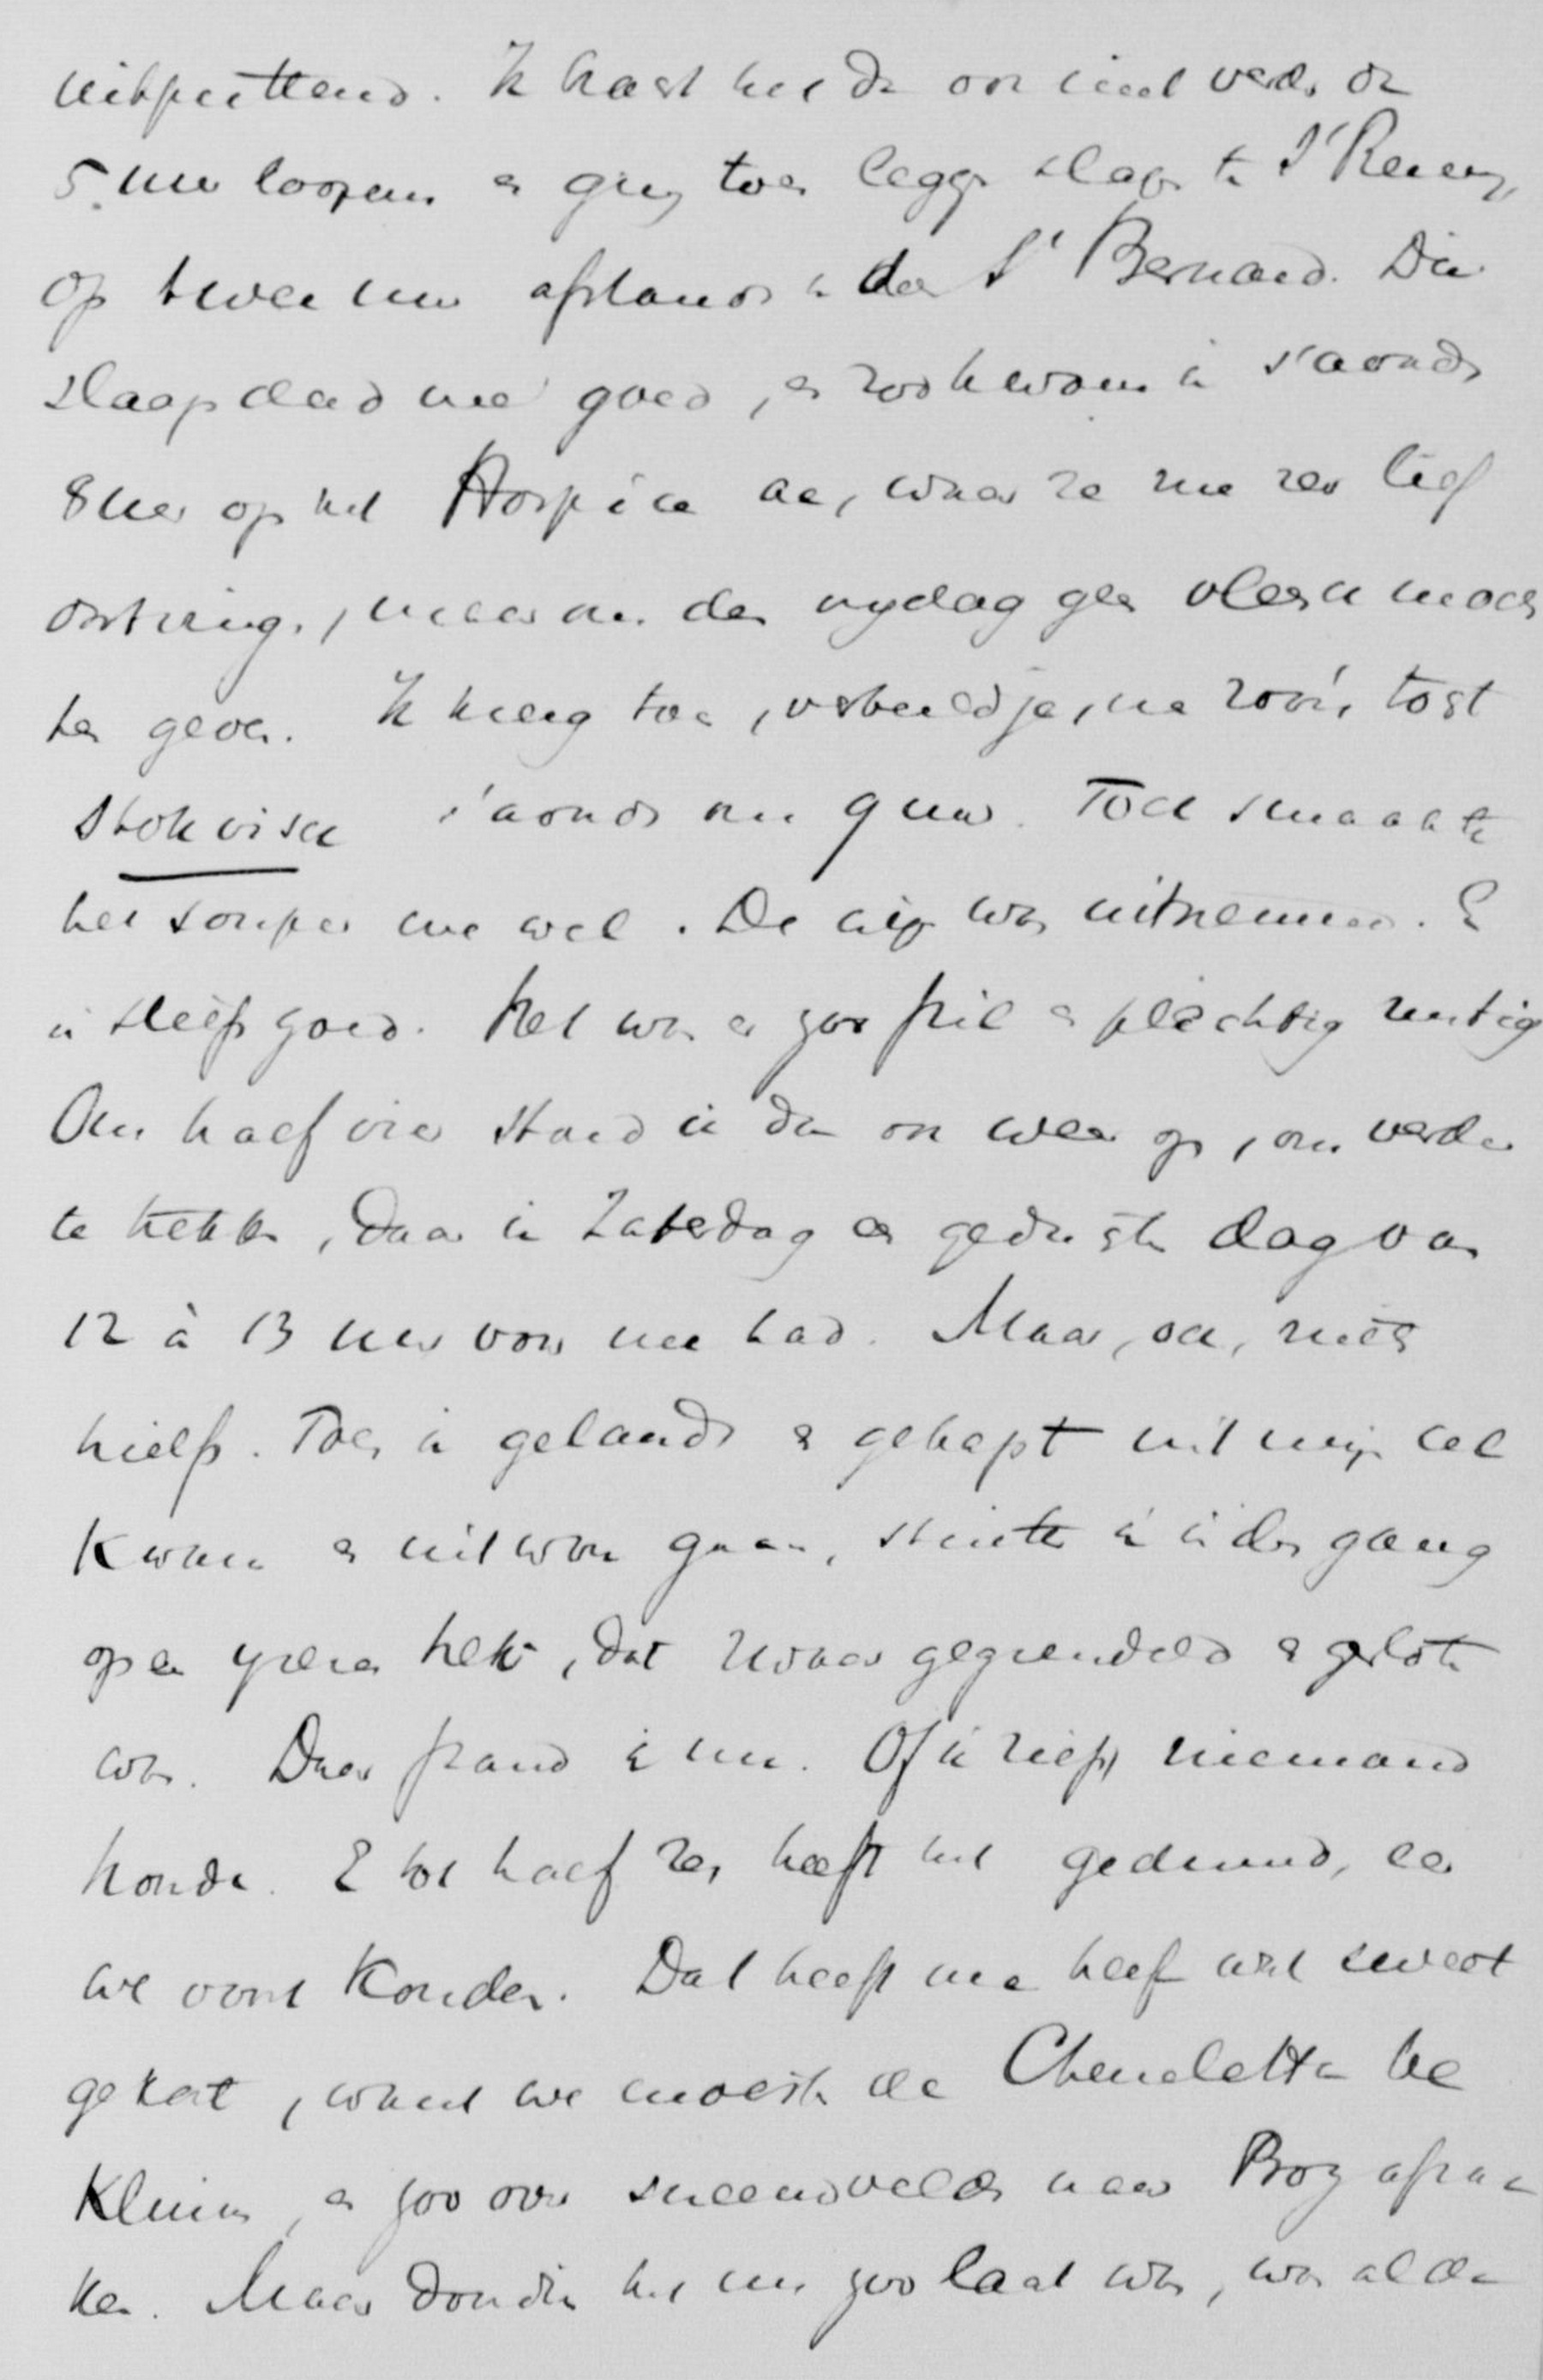 uitputtend. Ik hart het dan ook niet verder dan
5 uur loopen en ging toen leggen slapen te St Remy,
op twee uur afstand v. den St Bernard. Die
slaap deed me goed, en zoo kwam ik 's avonds
8 uur op het Hospice aan, waar ze me zeer lief
ontvingen, maar me den vrijdag geen vleesch moch
ten geven. Ik kreeg toen, verbeeld je, me zoowaar
stokvisch 's avonds om 9 uur. Toch smaakte
het souper me wel. De wijn was uitnemend. En
ik sliep goed. Het was er zoo stil en plechtig rustig
Om half vier stond ik dan ook weer op, om verder
te trekken, daar ik Zaterdag een geduchten dag van
12 à 13 uur voor me had. Maar, och, niets
hielp. Toen ik gelaarsd en gekapt uit mijn cel
kwam en uit wou gaan, stuitte ik in den gang
op een yzeren hek, dat zwaar gegrendeld en gesloten
was. Daar stond ik nu. Of ik riep, niemand
hoorde. En tot half zes heeft het geduurd, eer
we voort konden. Dat heeft me heel wat zweet
gekost, want we moesten de Chenelette be
klimmen, en zoo over sneeuwvelden naar Proz afzak
ken. Maar doordien het nu zoo laat was, was al de